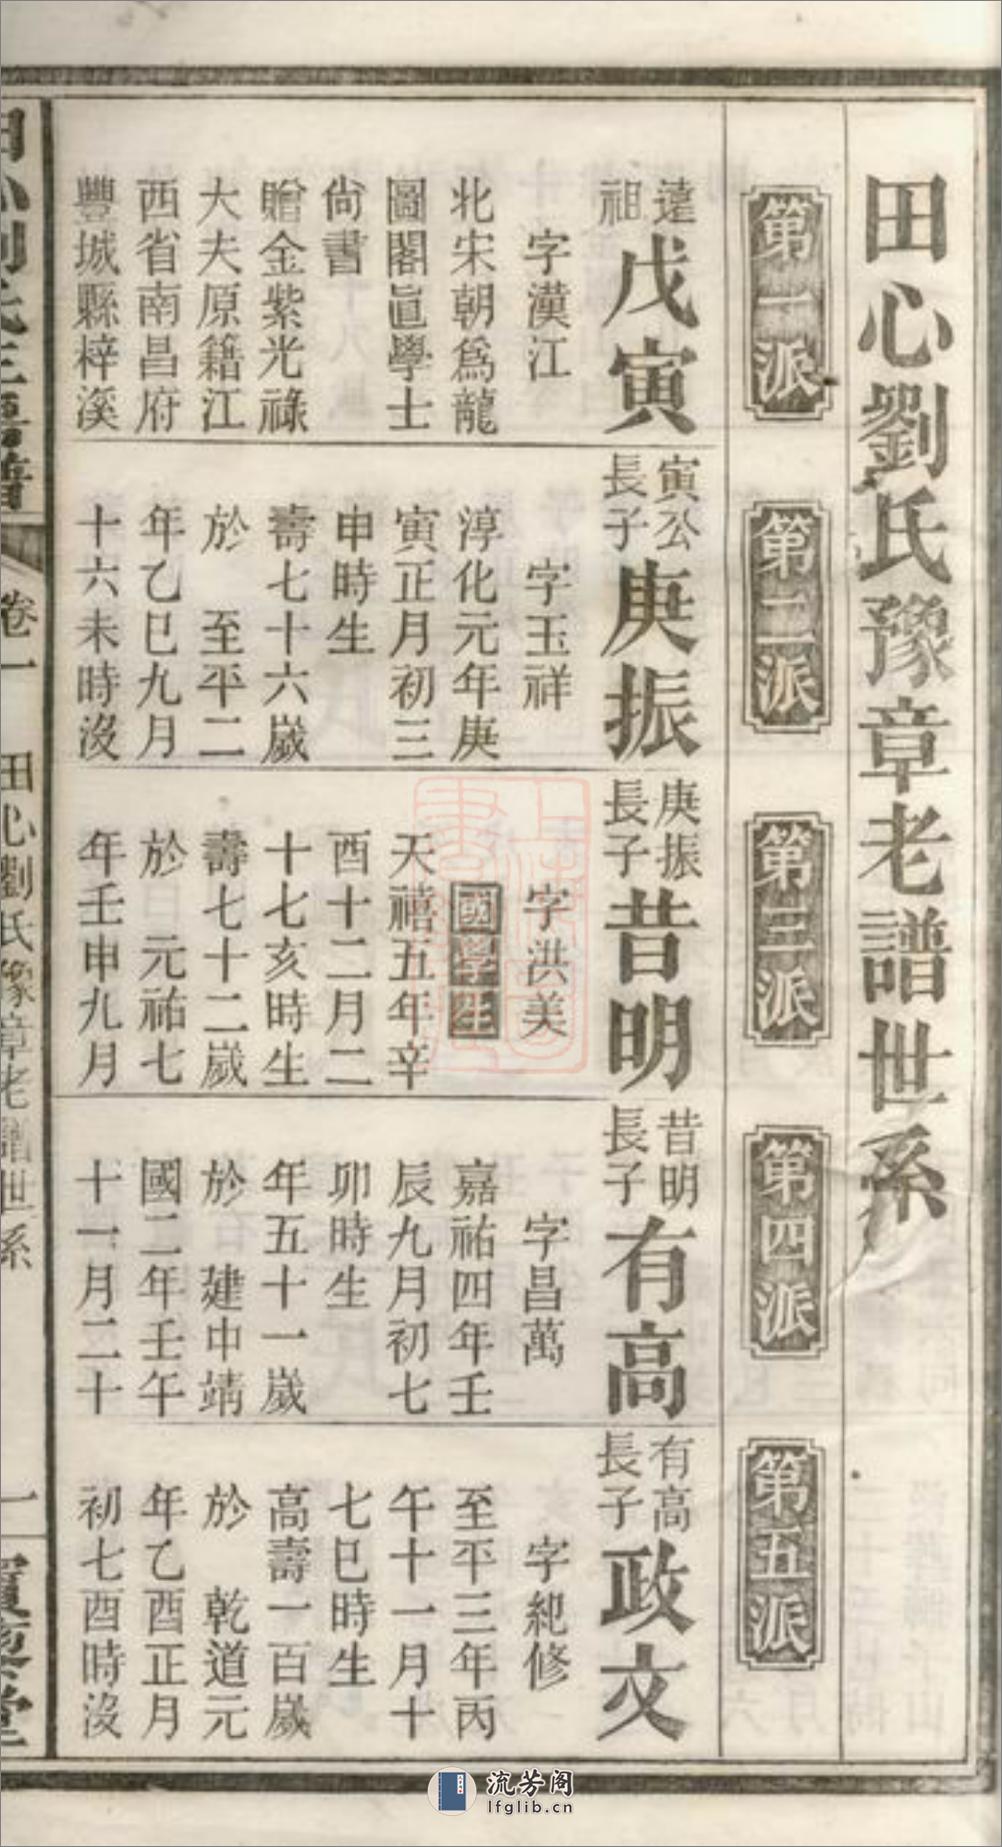 田心劉氏豫章老譜世系
第一派
遠祖
戊寅
字漢江
北宋朝爲龍
圖閣直學士
尙書
贈金紫光祿
大夫原籍江
西省南昌府
豐城縣梓溪
第二派
寅公長子
庚振
字玉祥
淳化元年庚
寅正月初三
申時生
壽七十六歲
於 至平二
年乙巳九月
十六未時沒
第三派
庚振長子
昔明
字洪美
國學生
天禧五年辛
酉十二月二
十七亥時生
壽七十二歲
於 元祐七
年壬申九月
第四派
昔明長子
有高
字昌萬
嘉祐四年壬
辰九月初七
卯時生
年五十一歲
於 建中靖
國二年壬午
十一月二十
第五派
有高長子
政文
字紀修
至平三年丙
午十一月十
七巳時生
高壽一百歲
於 乾道元
年乙酉正月
初七酉時沒
卷一
田心劉氏豫章老譜世系
一
流芳阁
lfglib.cn